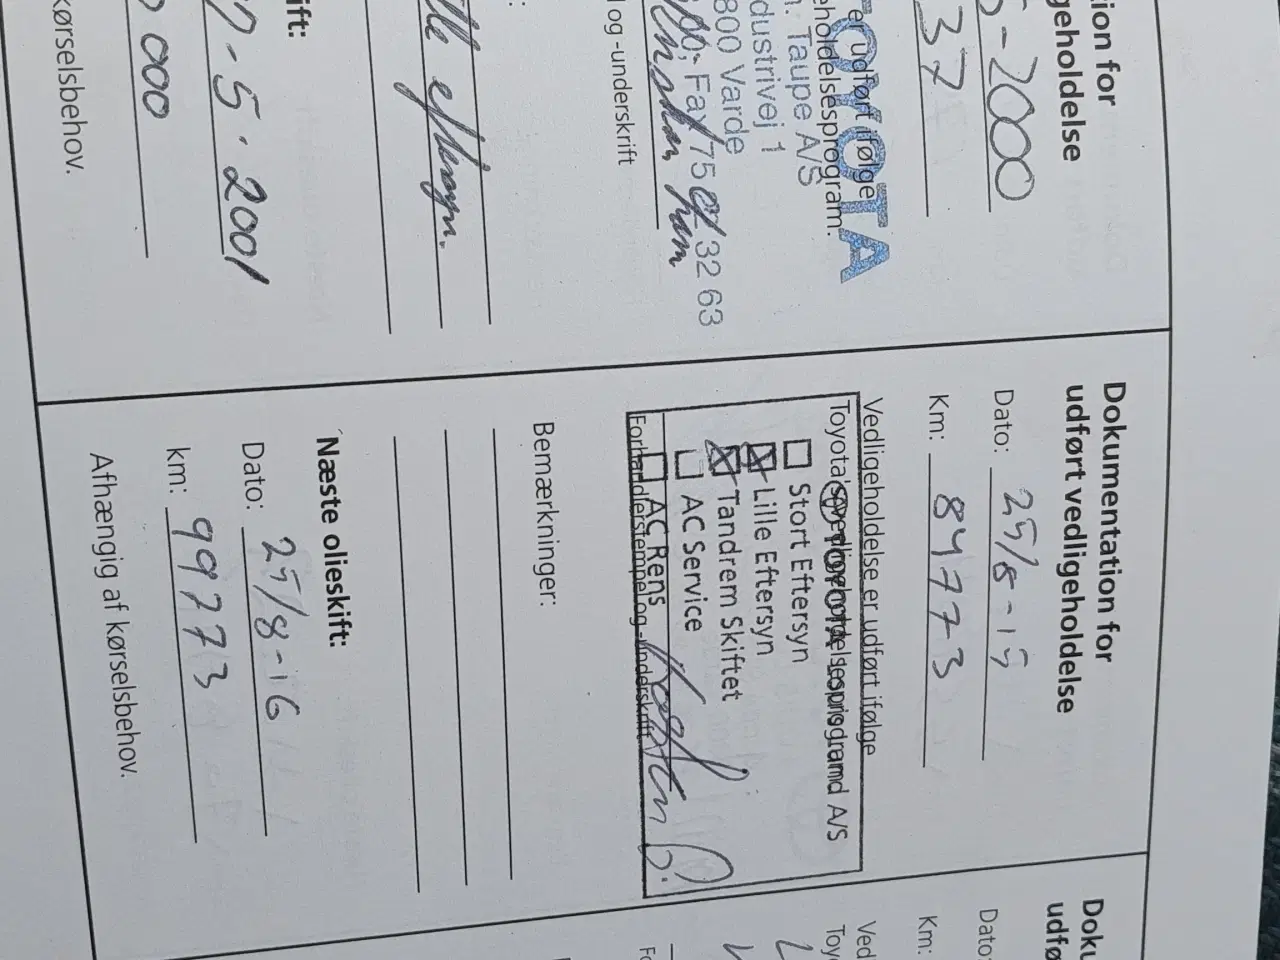 tion for
geholdelse
5-2000
37
er udført ifølge
eholdelsesprogram.
TOYOTA
n. Taupe A/S
dustrivej 1
800 Varde
Fax 75 32 63
og -underskrift
ift:
7-5-2001
000
kørselsbehov.
Dokumentation for
udført vedligeholdelse
Dato: 25/8-15
Km: 84773
Vedligeholdelse er udført ifølge
Toyotas vedligeholdelsesprogram
TOYOTA A/S
Stort Eftersyn
Lille Eftersyn
Tandrem Skiftet
AC Service
AC Rens
Forhandlerstempel og -underskrift
Bemærkninger:
Næste olieskift:
Dato: 25/8-16
km: 99773
Afhængig af kørselsbehov.
Doku
udfø
Dato:
Km:
Ved
Toyo
Fo